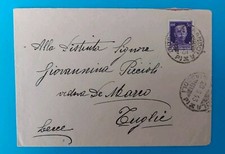 Alla Distinta Signora
Giovannina Piccioli
vedova De Marco
Tuglie
Lecce